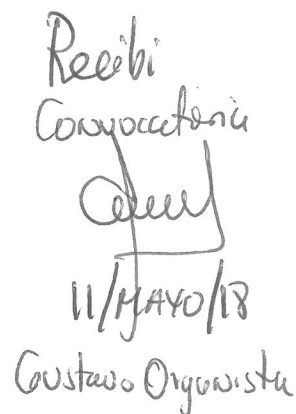 Recibi
Convocatoria
11/MAYO/18
Gustavo Organista